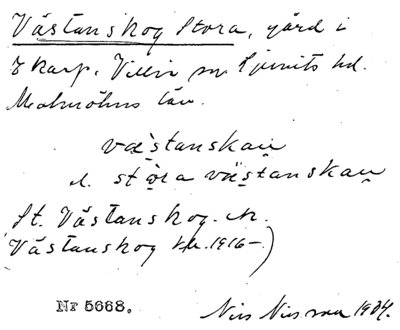 Västanskog Stora, gård i
Skarp, Villie sn Ljunits hd.
Malmöhus län.
væ̀stanskau̯
l. stǫra væ̀stanskau̯
St. Västanskog.
Västanskog 1916-)
No 5668. Nils Nilsson 1934.